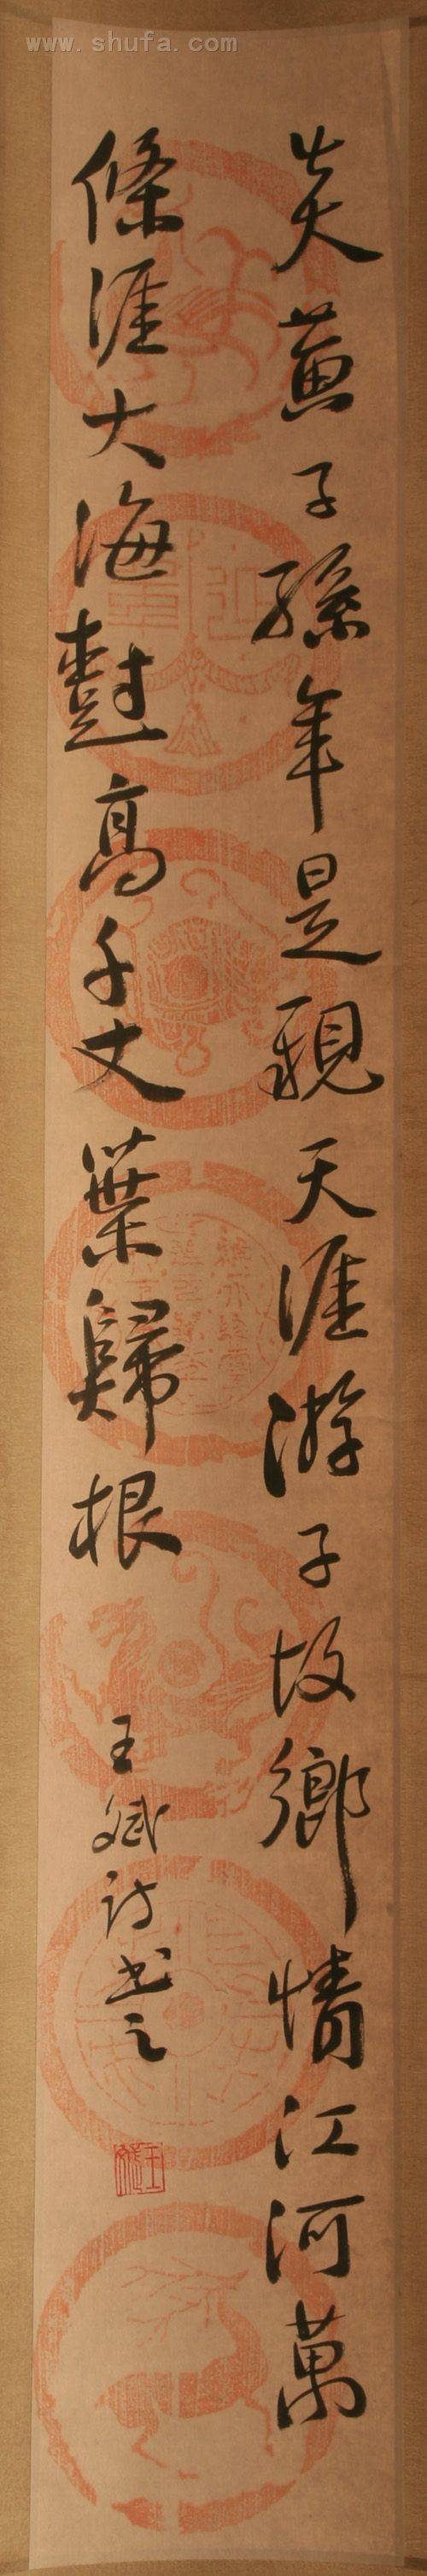 www.shufa.com
炎黄子孫年是親天涯游子故鄉情江河萬
條涯大海樹高千丈葉歸根
王斌詩書之